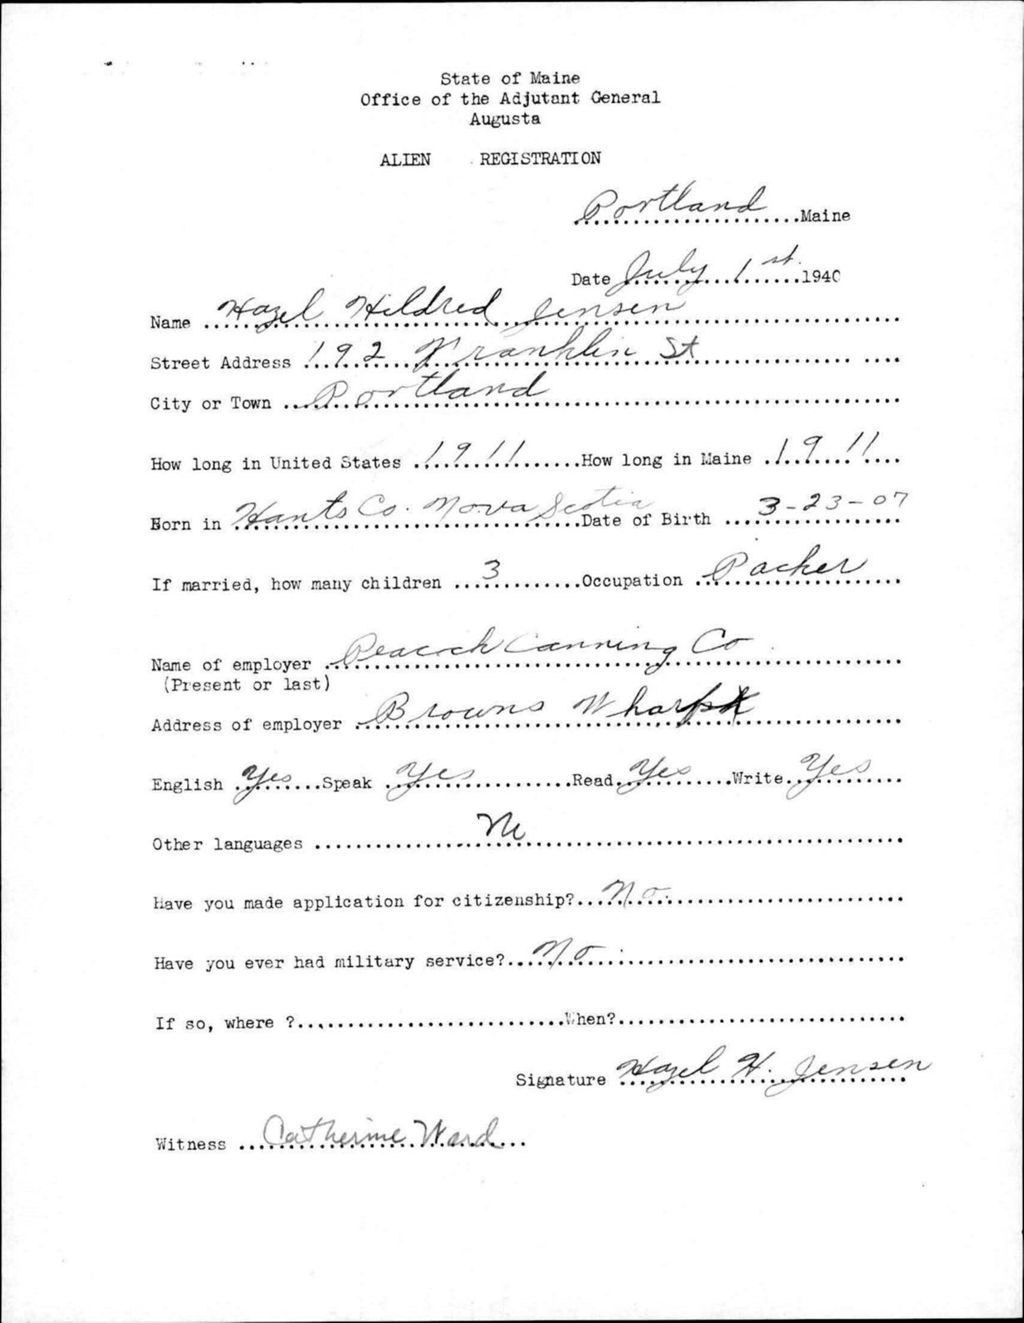 State of Maine
Office of the Adjutant General
Augusta
ALIEN REGISTRATION
Portland Maine
Date July 1st. 1940
Name Hazel Hildred Jensen
Street Address 192 Franklin St
City or Town Portland
How long in United States 1911 How long in Maine 1911
Born in Hants Co. Nova Scotia Date of Birth 3-23-07
If married, how many children 3 Occupation Packer
Name of employer Peacock Canning Co
(Present or last)
Address of employer Browns Wharf
English Yes Speak Yes Read Yes Write Yes
Other languages
Have you made application for citizenship? No.
Have you ever had military service? No.
If so, where ? When?
Signature Hazel H. Jensen
Witness Catherine Ward